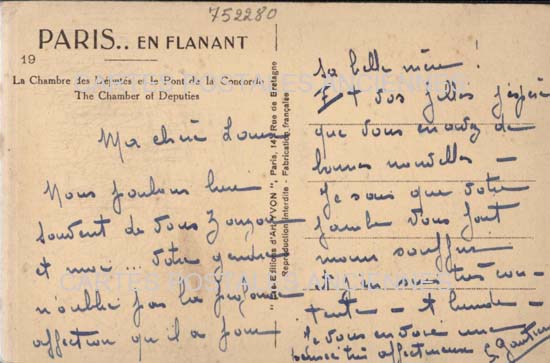 752280
PARIS.. EN FLANANT
19
La Chambre des Députés et le Pont de la Concorde
The Chamber of Deputies
CARTES POSTALES ANCIENNES
Ma chère Louise
Nous parlons bien
souvent de vous Zouzou
et moi... votre gendre
n'oublie pas la profonde
affection qu'il a pour
"Les Editions d'Art YVON", Paris, 14, Rue de Bretagne
Reproduction Interdite - Fabrication française
sa belle mère !
Et vos filles j'espère
que vous en avez de
bonnes nouvelles —
Je sais que votre
jambe vous fait
moins souffrir
et j'en suis très con-
tente — 
Je vous envoie une
affectueuse
CARTES POSTALES ANCIENNES